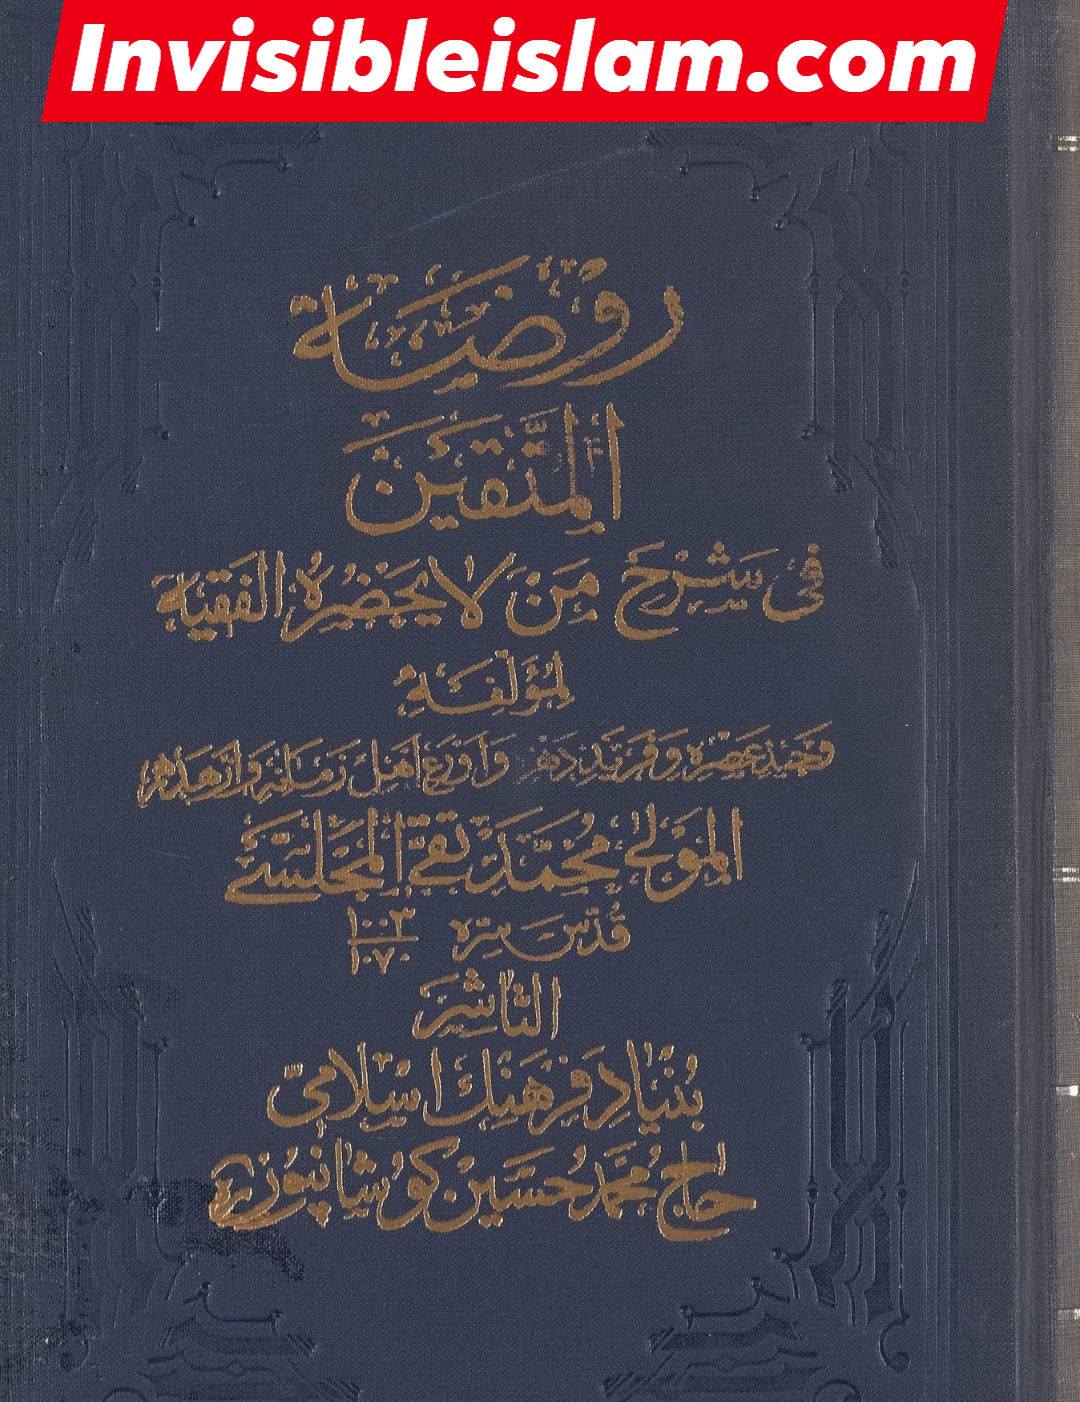 Invisibleislam.com
روضة
المتقين
في شرح من لا يحضره الفقيه
لمؤلفه
وحيد عصره وفريد دهره واورع اهل زمانه وازهدهم
المولى محمد تقي المجلسي
قدس سره ١٠٠٣ ١٠٧٠
الناشر
بنياد فرهنك اسلامي
حاج محمد حسين كوشانپور